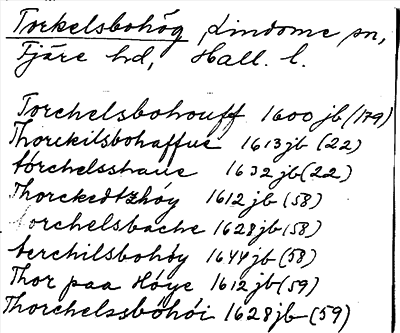 Torkelsbohög, Lindome sn,
Fjäre hd, Hall. l.
Torchelsbohouff 1600 jb (179)
Thorckilsbohaffue 1613 jb (22)
törchelsshaue 1632 jb (22)
Thorckedtzhöy 1612 jb (58)
torchelsbache 1628 jb (58)
terchilsbohöy 1644 jb (58)
Thor paa Höye 1612 jb (59)
Thorchelssböhöi 1628 jb (59)